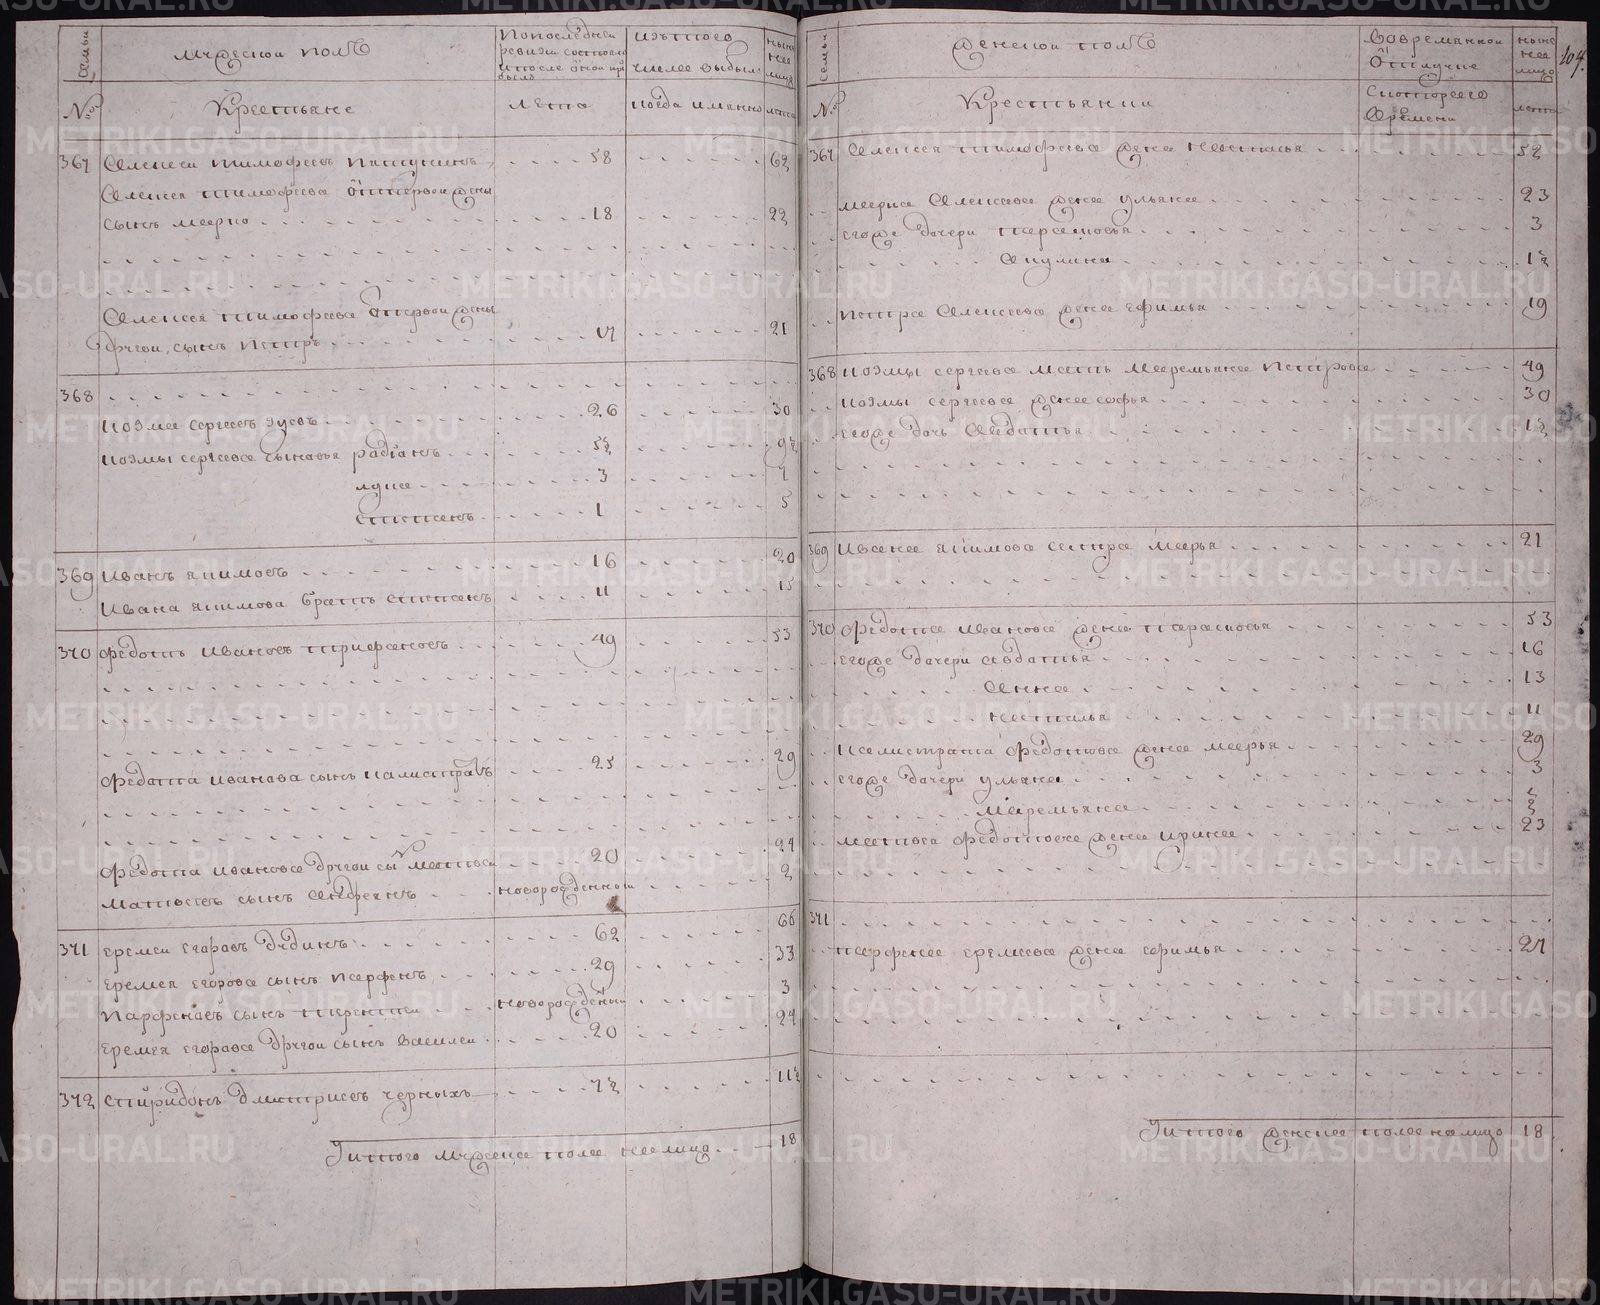 семьи
мужеской полъ
По последней ревизии состояло и после оной прибыло
Изъ того числа выбыло
ныне на лицо
№
Крестьяне
лета
когда именно
лета
367 Алексей тимофеевъ 58 62
Алексея тимофеева от первой жены
сынъ марко 18 22
Алексея тимофеева от первой жены
другой сынъ петръ 17 21
368
козма сергеевъ зуевъ 26 30
козмы сергеева сыновья радiонъ 5½ 9½
лука 3 7
степанъ 1 5
369 Иванъ якимовъ 16 20
Ивана якимова братъ степанъ 11 15
370 федотъ Ивановъ трифановъ 49 53
федота иванава сынъ калистратъ 25 29
федота иванова другой сынъ матвеи 20 24
матвеевъ сынъ андреянъ новорожденной 2
371 еремеи егоравъ дядинъ 62 66
еремея егорова сынъ парфенъ 29 33
парфеновъ сынъ терентеи новорожденый 3
еремея егорава другои сынъ василеи 20 24
372 спиридонъ дмитриевъ черныхъ 7½ 11½
Итого мужеска пола на лицо 18
семьи
женской полъ
Во временной отлучке
ныне на лицо
104.
№
Крестьянки
С которого времени
лета
367 Алексея тимофеева жена настасья 52
марка Алексеева жена ульяна 23
егоже дочери парасковья 3
Акулина 1½
петра Алексеева жена ефимья 19
368 козмы сергеева мать маремьяна петрова 49
козмы сергеева жена софья 30
егоже дочь Авдотья 1½
369 Ивана якимова сестра марья 21
370 федота иванова жена парасковья 53
егоже дочери авдотья 16
Анна 13
наталья 11
калистрата федотова жена марья 29
егоже дочери ульяна 3
маремьяна ½
матвея федотова жена ирина 23
371
парфена еремеева жена ефимья 27
Итого женска пола на лицо 18
METRIKI.GASO-URAL.RU